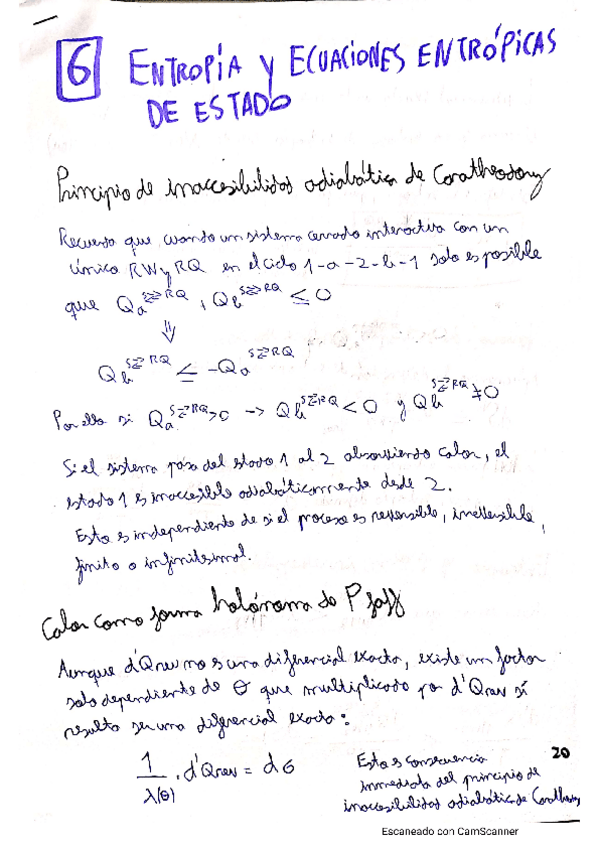 6 ENTROPÍA Y ECUACIONES ENTRÓPICAS
DE ESTADO
Principio de inaccesibilidad adiabática de Caratheodory
Recuerda que cuando un sistema cerrado interactúa con un
único RW y RQ en el ciclo 1-a-2-b-1 solo es posible
que Qa^{S⇄RQ} + Qb^{S⇄RQ} ≤ 0
⇓
Qb^{S⇄RQ} ≤ -Qa^{S⇄RQ}
Por ello si Qa^{S⇄RQ}>0 -> Qb^{S⇄RQ}<0 y Qb^{S⇄RQ}≠0
Si el sistema pasa del estado 1 al 2 absorviendo calor, el
estado 1 es inaccesible adiabáticamente desde 2.
Esto es independiente de si el proceso es reversible, irreversible,
finito o infinitesimal.
Calor como forma holónoma de Pfaff
Aunque d'Qrev no es una diferencial exacta, existe un factor
solo dependiente de θ que multiplicado por d'Qrev sí
resulta ser una diferencial exacta:
1/λ(θ) · d'Qrev = dσ
Esto es consecuencia
inmediata del principio de
inaccesibilidad adiabática de Caratheodory
20
Escaneado con CamScanner